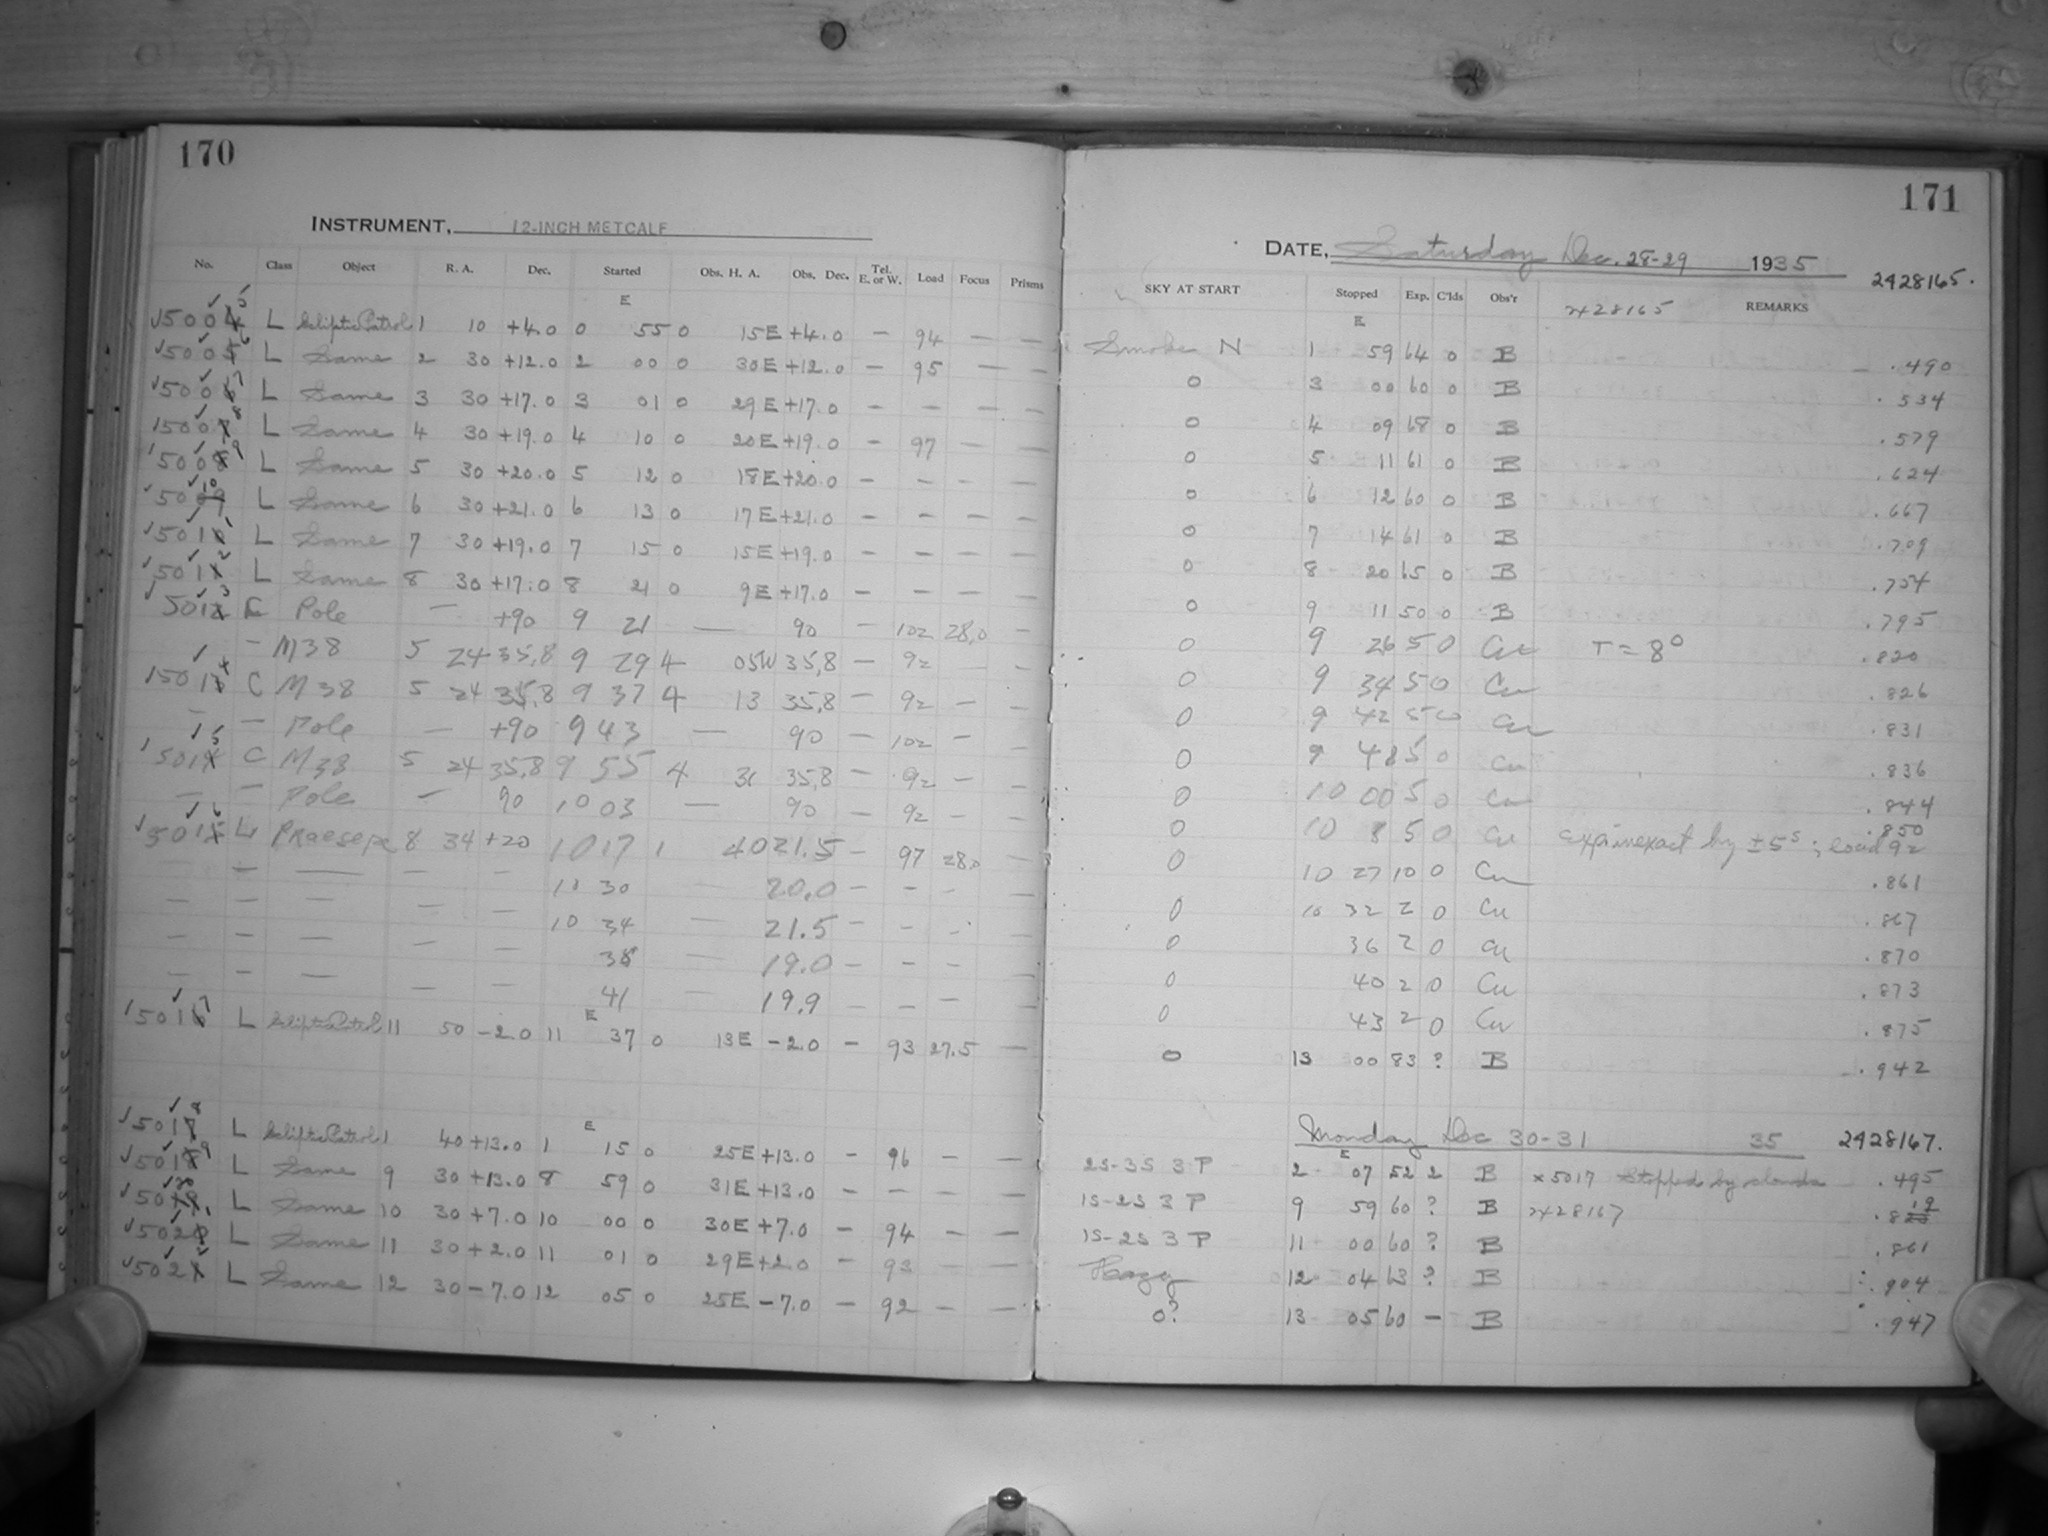 170
INSTRUMENT, 12-INCH METCALF
No. Class Object R. A. Dec. Started Obs. H. A. Obs. Dec. Tel. E. or W. Load Focus Prisms
E
L Ecliptic Patrol 1 10 +4.0 0 55 0 15E +4.0 — 94 — —
L Same 2 30 +12.0 2 00 0 30E +12.0 — 95 — —
L Same 3 30 +17.0 3 01 0 29E +17.0 — — — —
L Same 4 30 +19.0 4 10 0 20E +19.0 — 97 — —
L Same 5 30 +20.0 5 12 0 18E +20.0 — — — —
L Same 6 30 +21.0 6 13 0 17E +21.0 — — — —
L Same 7 30 +19.0 7 15 0 15E +19.0 — — — —
L Same 8 30 +17.0 8 21 0 9E +17.0 — — — —
C Pole — +90 9 21 — 90 — 102 28.0 —
— M38 5 24 35.8 9 29 4 05W 35.8 — 92 — —
C M38 5 24 35.8 9 37 4 13 35.8 — 92 — —
— — Pole — +90 9 43 — 90 — 102 — —
C M38 5 24 35.8 9 55 4 31 35.8 — 92 — —
— — Pole — 90 10 03 — 90 — 92 — —
L Praesepe 8 34 +20 10 17 1 40 21.5 — 97 28.0 —
— — — — 10 30 — 20.0 — — — —
— — — — — 10 34 — 21.5 — — — —
— — — — — 38 — 19.0 — — — —
— — — — — 41 — 19.9 — — — —
L Ecliptic Patrol 11 50 -2.0 11 E 37 0 13E -2.0 — 93 27.5 —
L Ecliptic Patrol 1 40 +13.0 1 E 15 0 25E +13.0 — 96 — —
L Same 9 30 +13.0 8 59 0 31E +13.0 — — — —
L Same 10 30 +7.0 10 00 0 30E +7.0 — 94 — —
L Same 11 30 +2.0 11 01 0 29E +2.0 — 93 — —
L Same 12 30 -7.0 12 05 0 25E -7.0 — 92 — —
171
DATE, Saturday Dec. 28-29 1935 2428165.
SKY AT START Stopped Exp. C'lds Obs'r 2428165 REMARKS
E
Smoke N 1 59 64 0 B .490
0 3 00 60 0 B .534
0 4 09 68 0 B .579
0 5 11 61 0 B .624
0 6 12 60 0 B .667
0 7 14 61 0 B .709
0 8 20 65 0 B .754
0 9 11 50 0 B .795
0 9 26 5 0 Cu T = 8° .820
0 9 34 5 0 Cu .826
0 9 42 5 0 Cu .831
0 9 48 5 0 Cu .836
0 10 00 5 0 Cu .844
0 10 8 5 0 Cu exp inexact by ±5s ; load 92 .850
0 10 27 10 0 Cu .861
0 10 32 2 0 Cu .867
0 36 2 0 Cu .870
0 40 2 0 Cu .873
0 43 2 0 Cu .875
0 13 00 83 ? B .942
Monday Dec 30-31 35 2428167.
2S-3S 3 P 2 E 07 52 2 B x5017 Stopped by clouds .495
1S-2S 3 P 9 59 60 ? B 2428167
1S-2S 3 P 11 00 60 ? B .861
Hazy 12 04 63 ? B .904
0? 13 05 60 — B .947